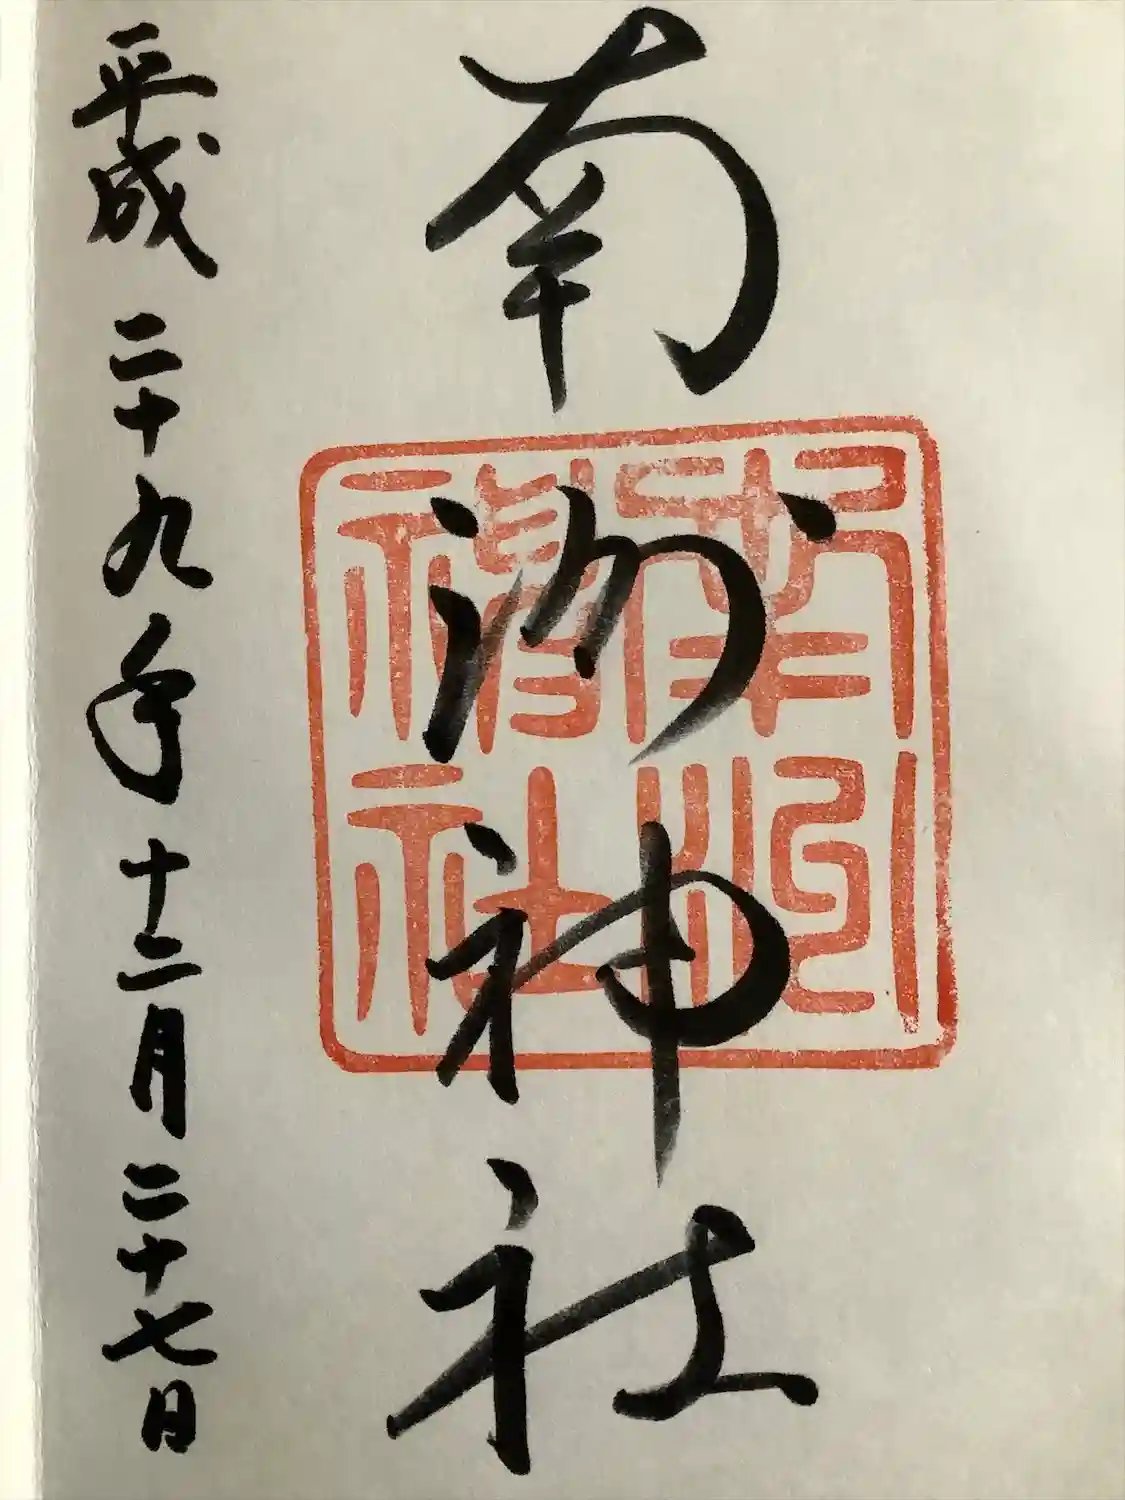 南洲神社
南洲
神社
平成二十九年十二月二十七日